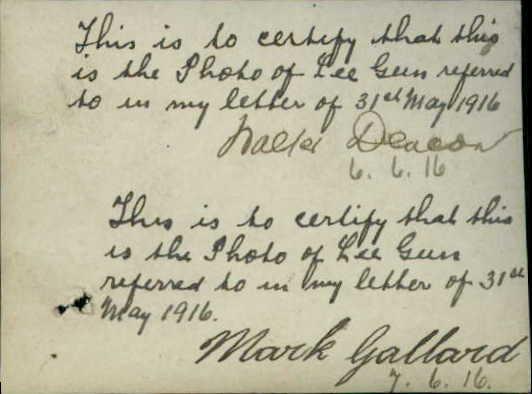 This is to certify that this
is the Photo of Lee Gun referred
to in my letter of 31st May 1916
Walter Deacon
6. 6. 16
This is to certify that this
is the Photo of Lee Gun
referred to in my letter of 31st
May 1916.
Mark Gallard
7. 6. 16.